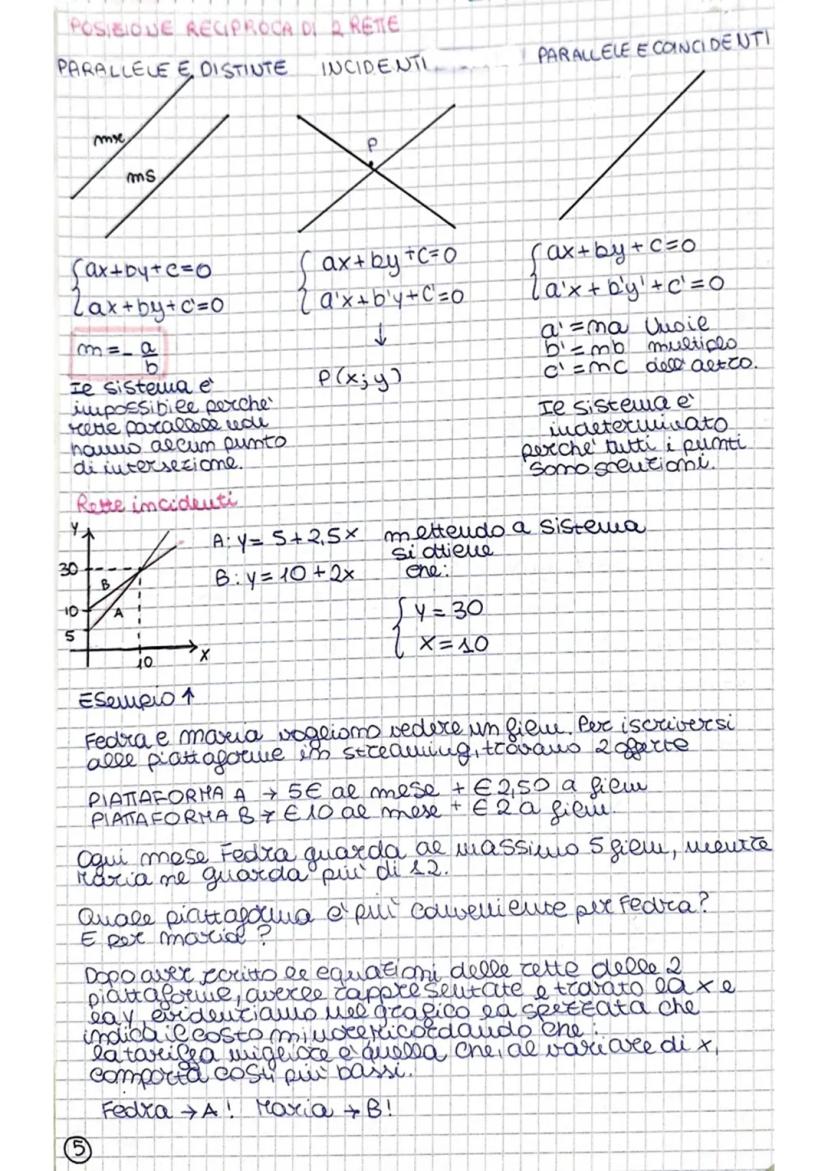 POSIZIONE RECIPROCA DI 2 RETTE
PARALLELE E DISTINTE INCIDENTI PARALLELE E COINCIDENTI
mr
ms
P
{ax+by+c=0
ax+by+c'=0
m=-a/b
Il sistema è
impossibile perché
rette parallele non
hanno alcun punto
di intersezione.
{ax+by+c=0
a'x+b'y+c'=0
↓
P(x;y)
{ax+by+c=0
a'x+b'y'+c'=0
a'=ma l'uno è
b'=mb multiplo
c'=mc dell'altro.
Il sistema è
indeterminato
perché tutti i punti
sono soluzioni.
Rette incidenti
Y
30
B
10
A
5
10
X
A: y=5+2,5x mettendo a sistema
si ottiene
B: y=10+2x che:
{y=30
x=10
Esempio ↑
Fedra e maria vogliono vedere un film. Per iscriversi
alle piattaforme in streaming, trovano 2 offerte
PIATTAFORMA A → 5€ al mese + €2,50 a film
PIATTAFORMA B → €10 al mese + €2 a film.
Ogni mese Fedra guarda al massimo 5 film, mentre
Maria ne guarda più di 12.
Quale piattaforma è più conveniente per Fedra?
E per maria?
Dopo aver scritto le equazioni delle rette delle 2
piattaforme, averle rappresentate e trovato la x e
la y, evidenziamo nel grafico la spezzata che
indica il costo minore ricordando che:
la tariffa migliore è quella che, al variare di x,
comporta costi più bassi.
Fedra → A! Maria → B!
5